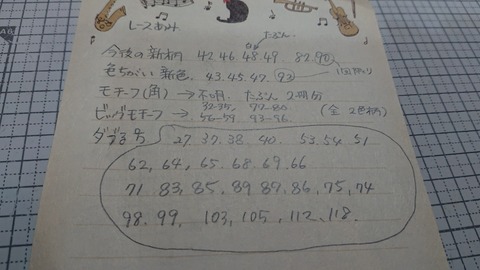 レースあみ
たぶん
今後の新柄 42 46 48 49. 82. 90
色ちがい新色. 43. 45. 47. 92 1回限り
モチーフ(角) → 不明. たぶん 2冊分
ビッグモチーフ → 32-35. 77-80. 56-59. 93-96. (全 2色柄)
ダブる号 27. 37. 38 40. 53. 54. 51
62, 64, 65. 68. 69. 66
71 83, 85. 89. 87. 86. 75, 74
98. 99, 103, 105, 112, 118.